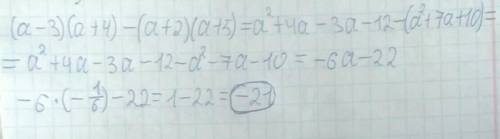 (a-3)(a+4)-(a+2)(a+5)=a²+4a-3a-12-(a²+7a+10)=
=a²+4a-3a-12-a²-7a-10=-6a-22
-6·(-1/6)-22=1-22=-21